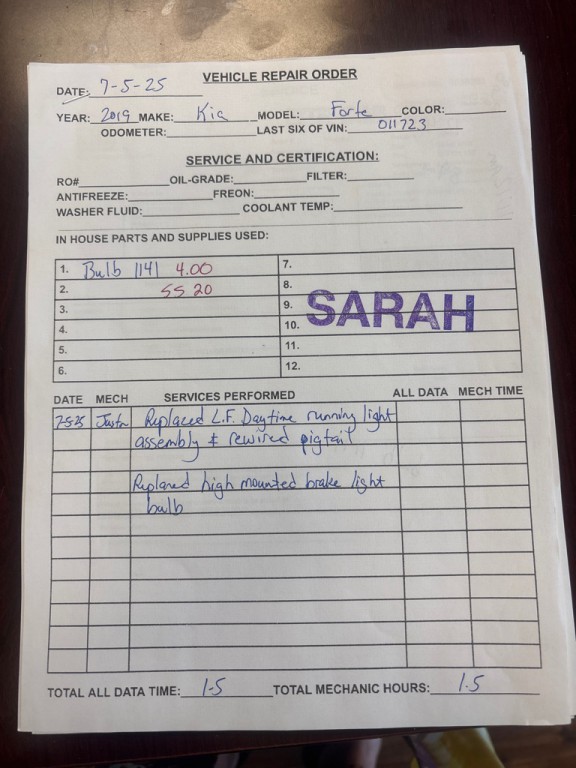 VEHICLE REPAIR ORDER
DATE: 7-5-25
YEAR: 2019 MAKE: Kia MODEL: Forte COLOR:
ODOMETER: LAST SIX OF VIN: 011723
SERVICE AND CERTIFICATION:
RO# OIL-GRADE: FILTER:
ANTIFREEZE: FREON:
WASHER FLUID: COOLANT TEMP:
IN HOUSE PARTS AND SUPPLIES USED:
1. Bulb 1141 4.00 7.
2. SS 20 8.
3. 9. SARAH
4. 10.
5. 11.
6. 12.
DATE MECH SERVICES PERFORMED ALL DATA MECH TIME
7-5-25 Justin Replaced L.F. Daytime running light
assembly & rewired pigtail
Replaced high mounted brake light
bulb
TOTAL ALL DATA TIME: 1-5 TOTAL MECHANIC HOURS: 1.5